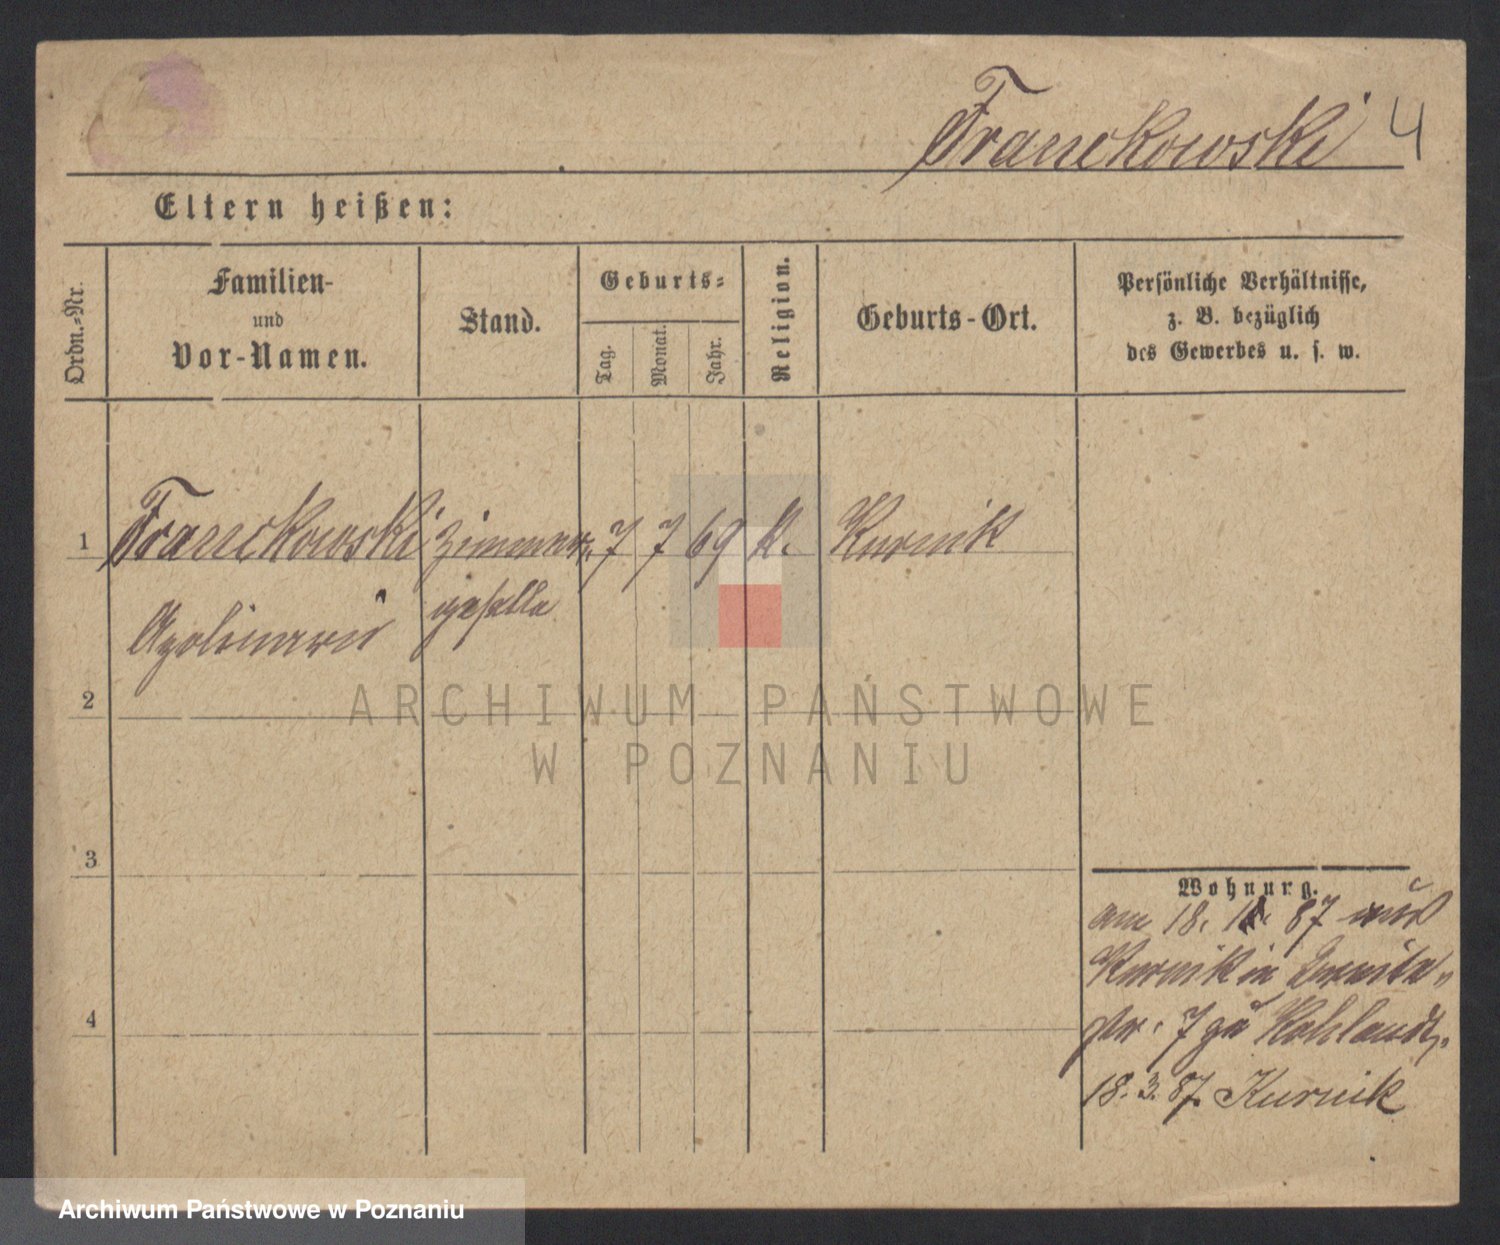 Franckowski 4
Eltern heißen:
Ordn.-Nr.
Familien-
und
Vor-Namen.
Stand.
Geburts-
Tag.
Monat.
Jahr.
Religion.
Geburts-Ort.
Persönliche Verhältnisse,
z. B. bezüglich
des Gewerbes u. s. w.
1 Franckowski Zimmer- 7 7 69 K. Kurnik
Apolinari geselle
2
ARCHIWUM PAŃSTWOWE
W POZNANIU
3
Wohnung.
am 18. 1. 87 aus
Kurnik in Breite-
str. 7 zu
4
18. 3. 87. Kurnik
Archiwum Państwowe w Poznaniu